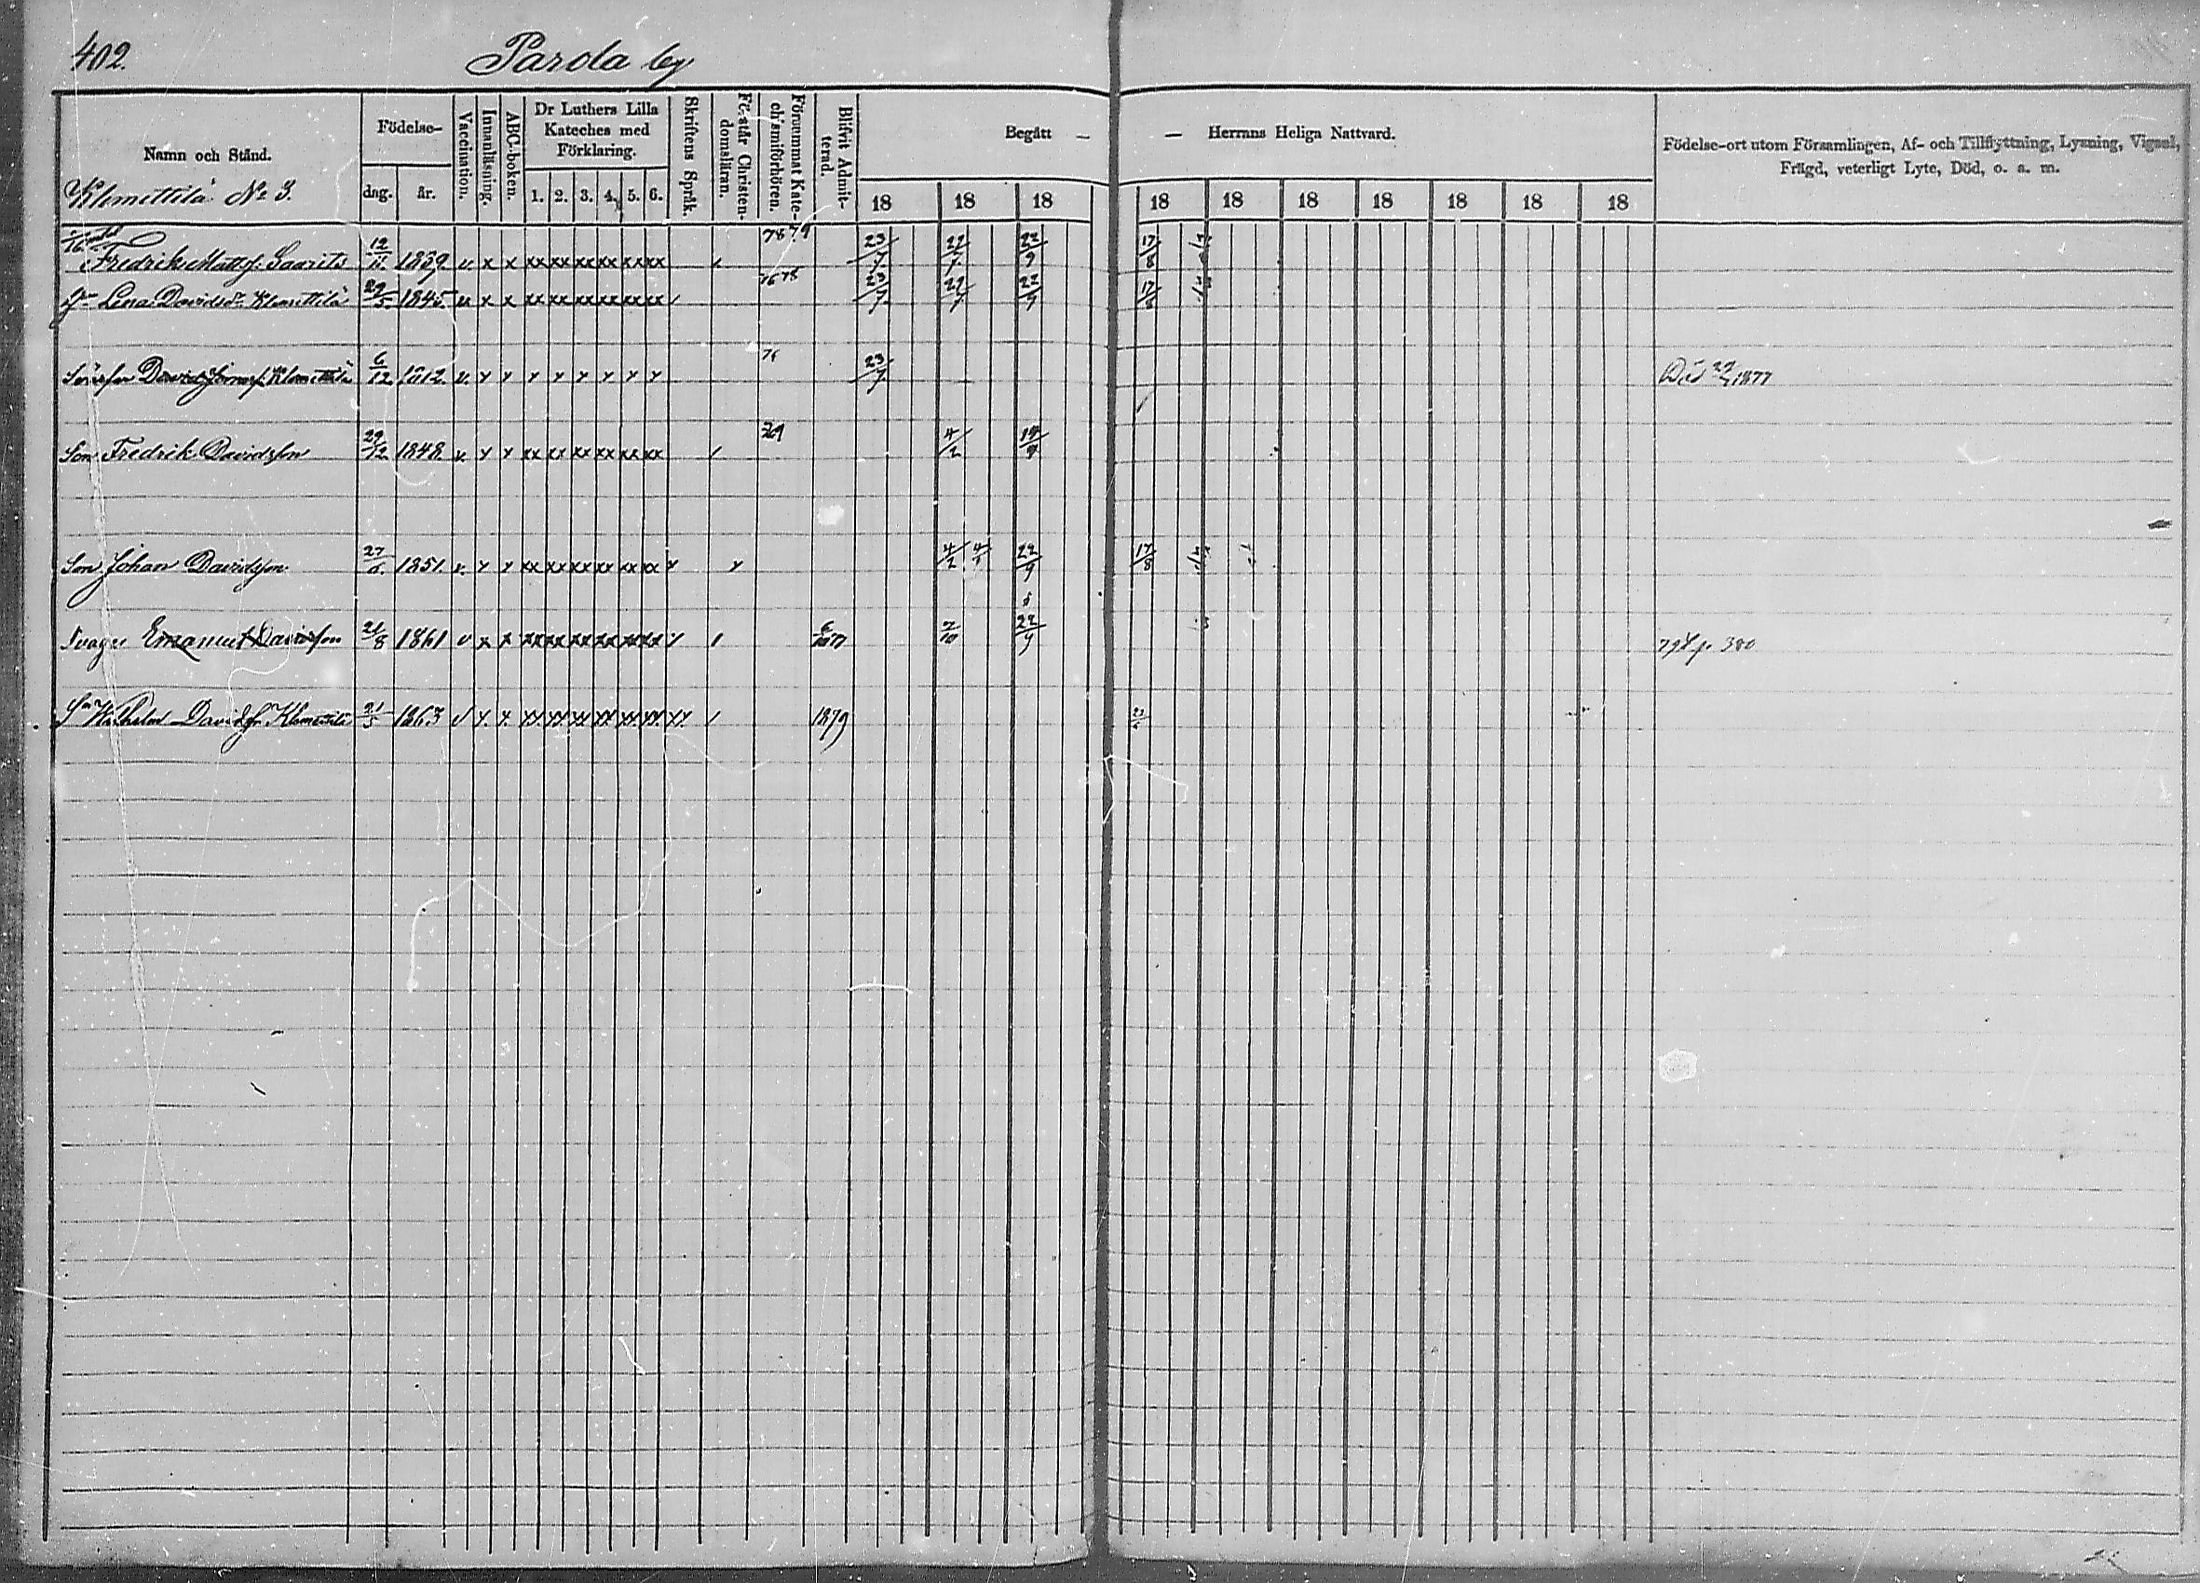 402.
Parola by
Namn och Stånd.
Klemettilä No 3.
Födelse-
dag. år.
Vaccination.
Innanläsning.
ABC-boken.
Dr Luthers Lilla Kateches med Förklaring.
1. 2. 3. 4. 5. 6.
Skriftens Språk.
Förstår Christendomsläran.
Försummat Katechismiförhören.
Blifvit Admitterad.
Begått — — Herrans Heliga Nattvard.
18 18 18 18 18 18 18 18 18 18
Födelse-ort utom Församlingen, Af- och Tillflyttning, Lysning, Vigsel,
Frägd, veterligt Lyte, Död, o. a. m.
Fredrik Mattss. Saarits 12 1839 v. x x xx xx xx xx xx xx 78 79 23/7 22/7 22/9 17/8
Lena Davidsdr Klemettilä 29/5 1845 v. x x xx xx xx xx xx xx 76 78 23/7 22/7 22/9 17/8
David Klemettilä 6/12 1812. v. x x x x x x x x 76 23/7 Död 1877
Son Fredrik Davidsson 29/12 1848 v. x x xx xx xx xx xx xx 4/2
Son Johan Davidsson 27 1851 v. x x xx xx xx xx xx xx x x 4/2 22/9 17/8
Emanuel Davidsson 21/8 1861 v x x xx xx xx xx xx xx 7/10 22/9 p. 380
Wilhelm Davidss. Klemettilä 21/5 1863 v x. x. xx xx xx xx xx xx xx. 1879